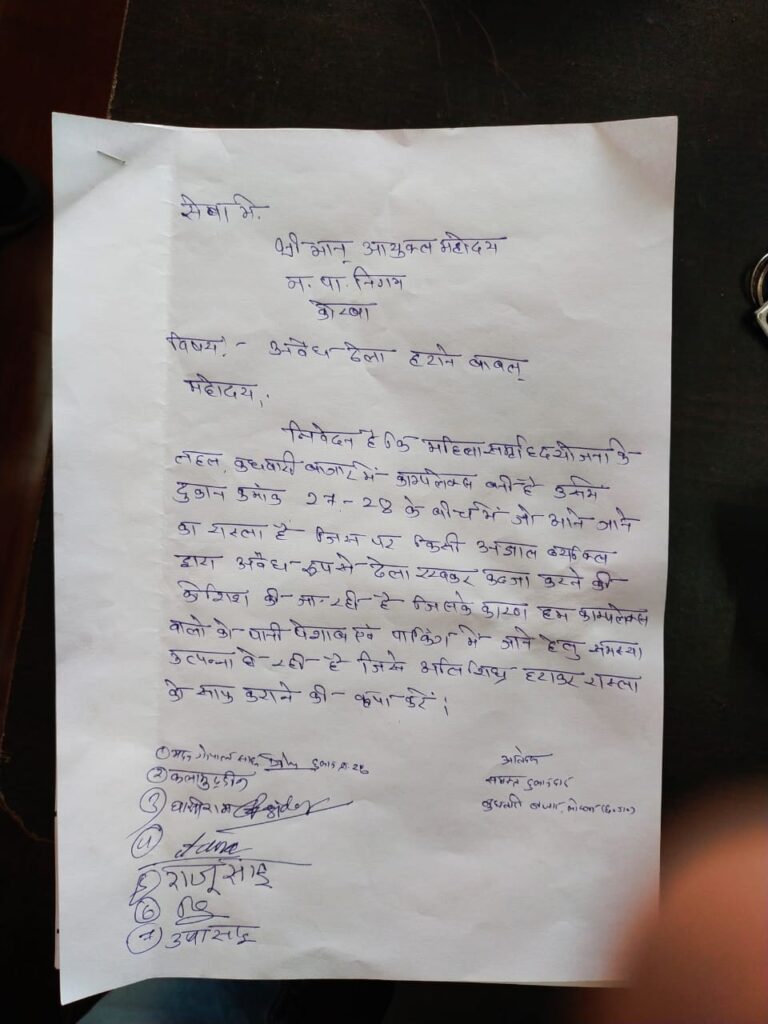 सेवा मे.
श्री मान् आयुक्त महोदय
न. पा. निगम
कोरबा
विषय:- अवैध ठेला हटाने बाबत्
महोदय,
निवेदन है कि महिला समृद्धि योजना के
तहत, बुधवारी बाजार में काम्पलेक्स बनी है उसमें
दुकान क्रमांक 27-28 के बीच में जो आने जाने
का रास्ता है जिस पर किसी अज्ञात व्यक्ति
द्वारा अवैध रूप से ठेला रखकर कब्जा करने की
कोशिश की जा रही है जिसके कारण हम काम्पलेक्स
वालो को पानी पेशाब एवं पार्किंग में जाने हेतु समस्या
उत्पन्न हो रही है जिसे अति शिघ्र हटाकर रास्ता
को साफ कराने की कृपा करें।
① गोपाल साहू दुकान क्र. 28
② कलामुद्दीन
③ घासीराम
④
⑤ राजू साहू
⑥
⑦ उषा साहू
आवेदक
समस्त दुकानदार
बुधवारी बाजार, कोरबा (छ.ग.)